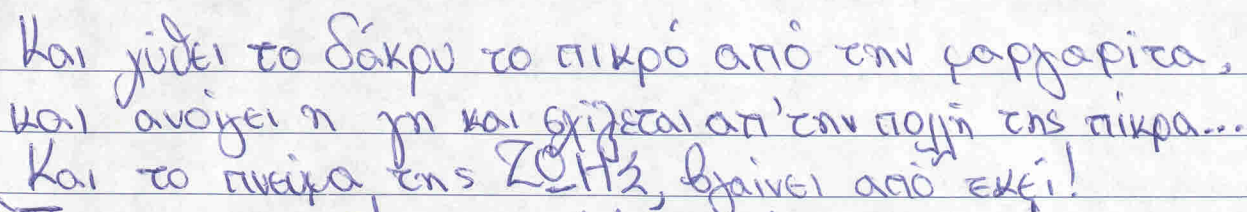 Και χύθει το δάκρυ το πικρό από την μαργαρίτα,
και ανοίγει η γη και σχίζεται απ' την πολλή της πίκρα...
Και το πνεύμα της ΖΩΗΣ, βγαίνει από εκεί!